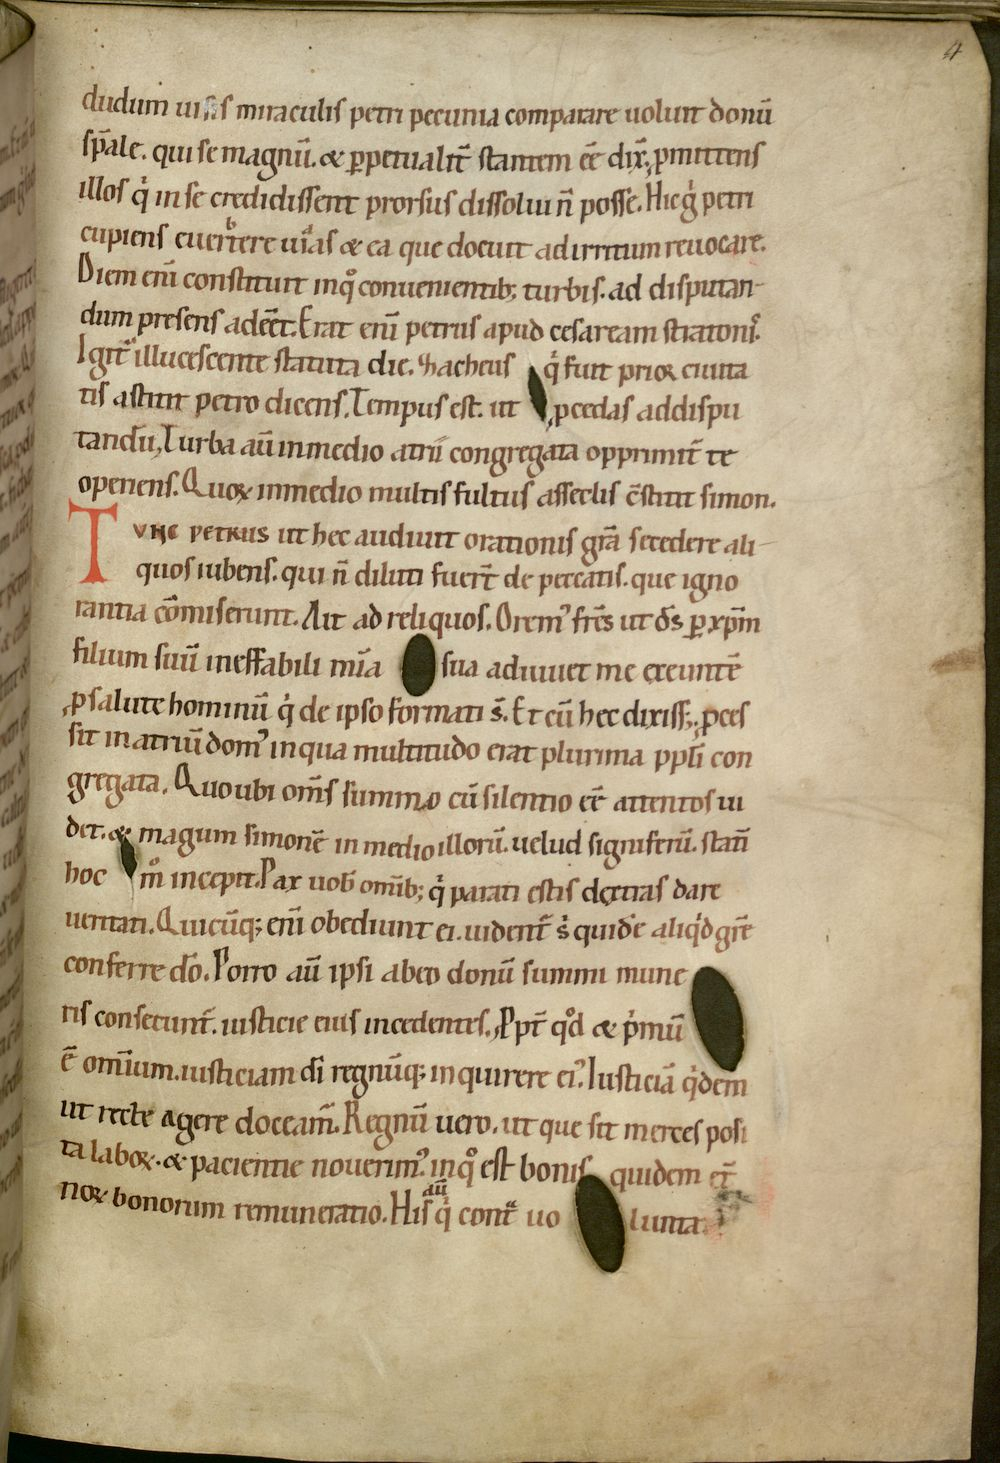 4
dudum uisis miraculis petri pecunia comparare uoluit donū
sp̄ale. qui se magnū. & ꝑpetualit̄ stantem eē dix̄, ꝓmittens
illos q̇ in se credidissent prorsus dissolui n̄ posse. Hic g̊ petri
cupiens euertere uias & ea que docuit ad irritum reuocare.
Diem eni̅ constituit in qͦ conuenientib; turbis. ad disputan-
dum presens adeēt. Erat eni̅ petrus apud cesaream stratonis̄.
Igit̄ illucescente statuta die. Zacheus q̇ fuit prior ciuita
tis astitit petro dicens. Tempus est. ut ꝓcedas ad dispu
tandū, Turba aū in medio atrii congregata opprimit̄ te
operiens. Quoꝝ in medio multis fultus asseclis c̄stitit simon.
TVNC PETRUS ut hec audiuit orationis gr̄a secedere ali-
quos iubens. qui n̄ diluti fuer̄t de peccatis. que igno
rantia cōmiserunt. Ait ad reliquos. Orem᾽ fr̄es ut d̄s ꝑ xp̄m
filium suū ineffabili mi̅a sua adiuuet me exeuntē
ꝓ salute hominū q̇ de ipso formati s̄. Et cū hec dixiss;, ꝓces
sit in atriū dom᾽ in qua multitudo erat plurima ppl̄i con
gregata. Quo ubi om̄s summo cū silentio eē attentos ui
det. & magum simonē in medio illorū. uelud signiferū. stan̄
hoc mͦ incepit. Pax uob̄ omīb; q̇ parati estis dextras dare
ueritati. Quicūq; eni̅ obediunt ei. uident̄ s̊ quidē aliq̇d gr̄e
conferre dō. Porro aū ipsi ab eo donū summi mune
ris consecunt̄. iusticie eius incedentes. Ꝓpt̄ qͦd & p̍mū
ē omīum. iusticiam di̅ regnūq; inquirere ei᾽. Iusticiā q̇dem
ut recte agere doceam̄. Regnū uero. ut que sit merces posi
ta laboꝝ. & pacientie nouerim᾽. in qͦ est bonis quidem et̄
noꝝ bonorum remuneratio. His aū q̇ cont̄ uo lunta